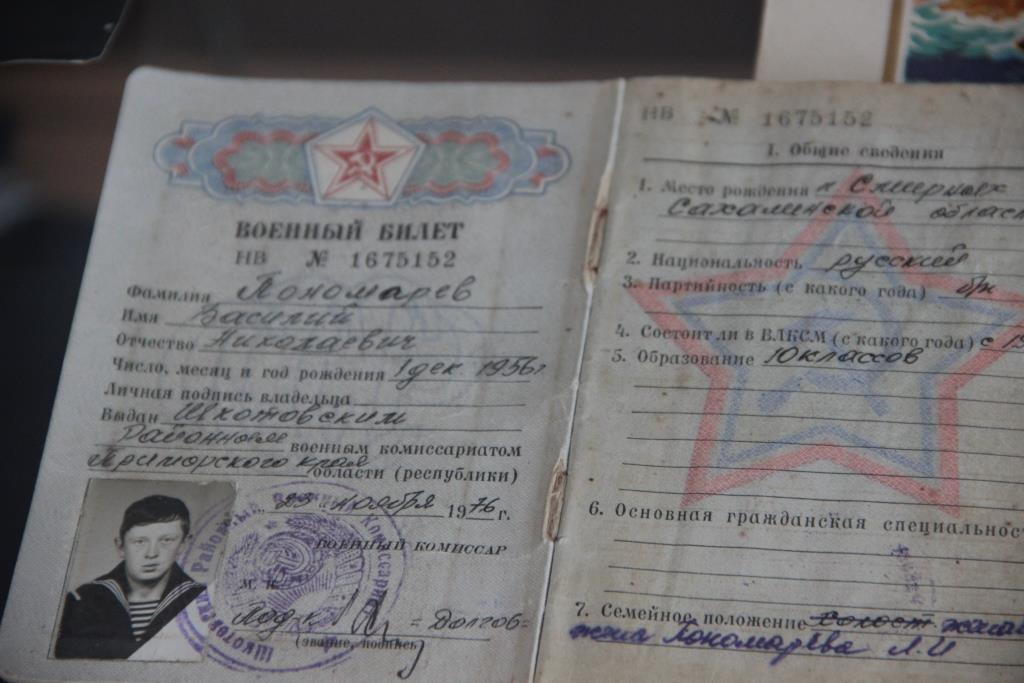 ВОЕННЫЙ БИЛЕТ
НВ № 1675152
Фамилия Пономарев
Имя Василий
Отчество Николаевич
Число, месяц и год рождения 1 дек 1956 г
Личная подпись владельца
Выдан Шкотовским
Районным военным комиссариатом
Приморского края области (республики)
„ 23 " ноября 1976 г.
ВОЕННЫЙ КОМИССАР
М. П.
= Долгов =
(звание, подпись)
НВ № 1675152
1. Общие сведения
1. Место рождения п. Смирных
Сахалинской област
2. Национальность русский
3. Партийность (с какого года) б/п
4. Состоит ли в ВЛКСМ (с какого года) с 19
5. Образование 10 классов
6. Основная гражданская специальнос
7. Семейное положение холост женат
жена Пономарева Л.И